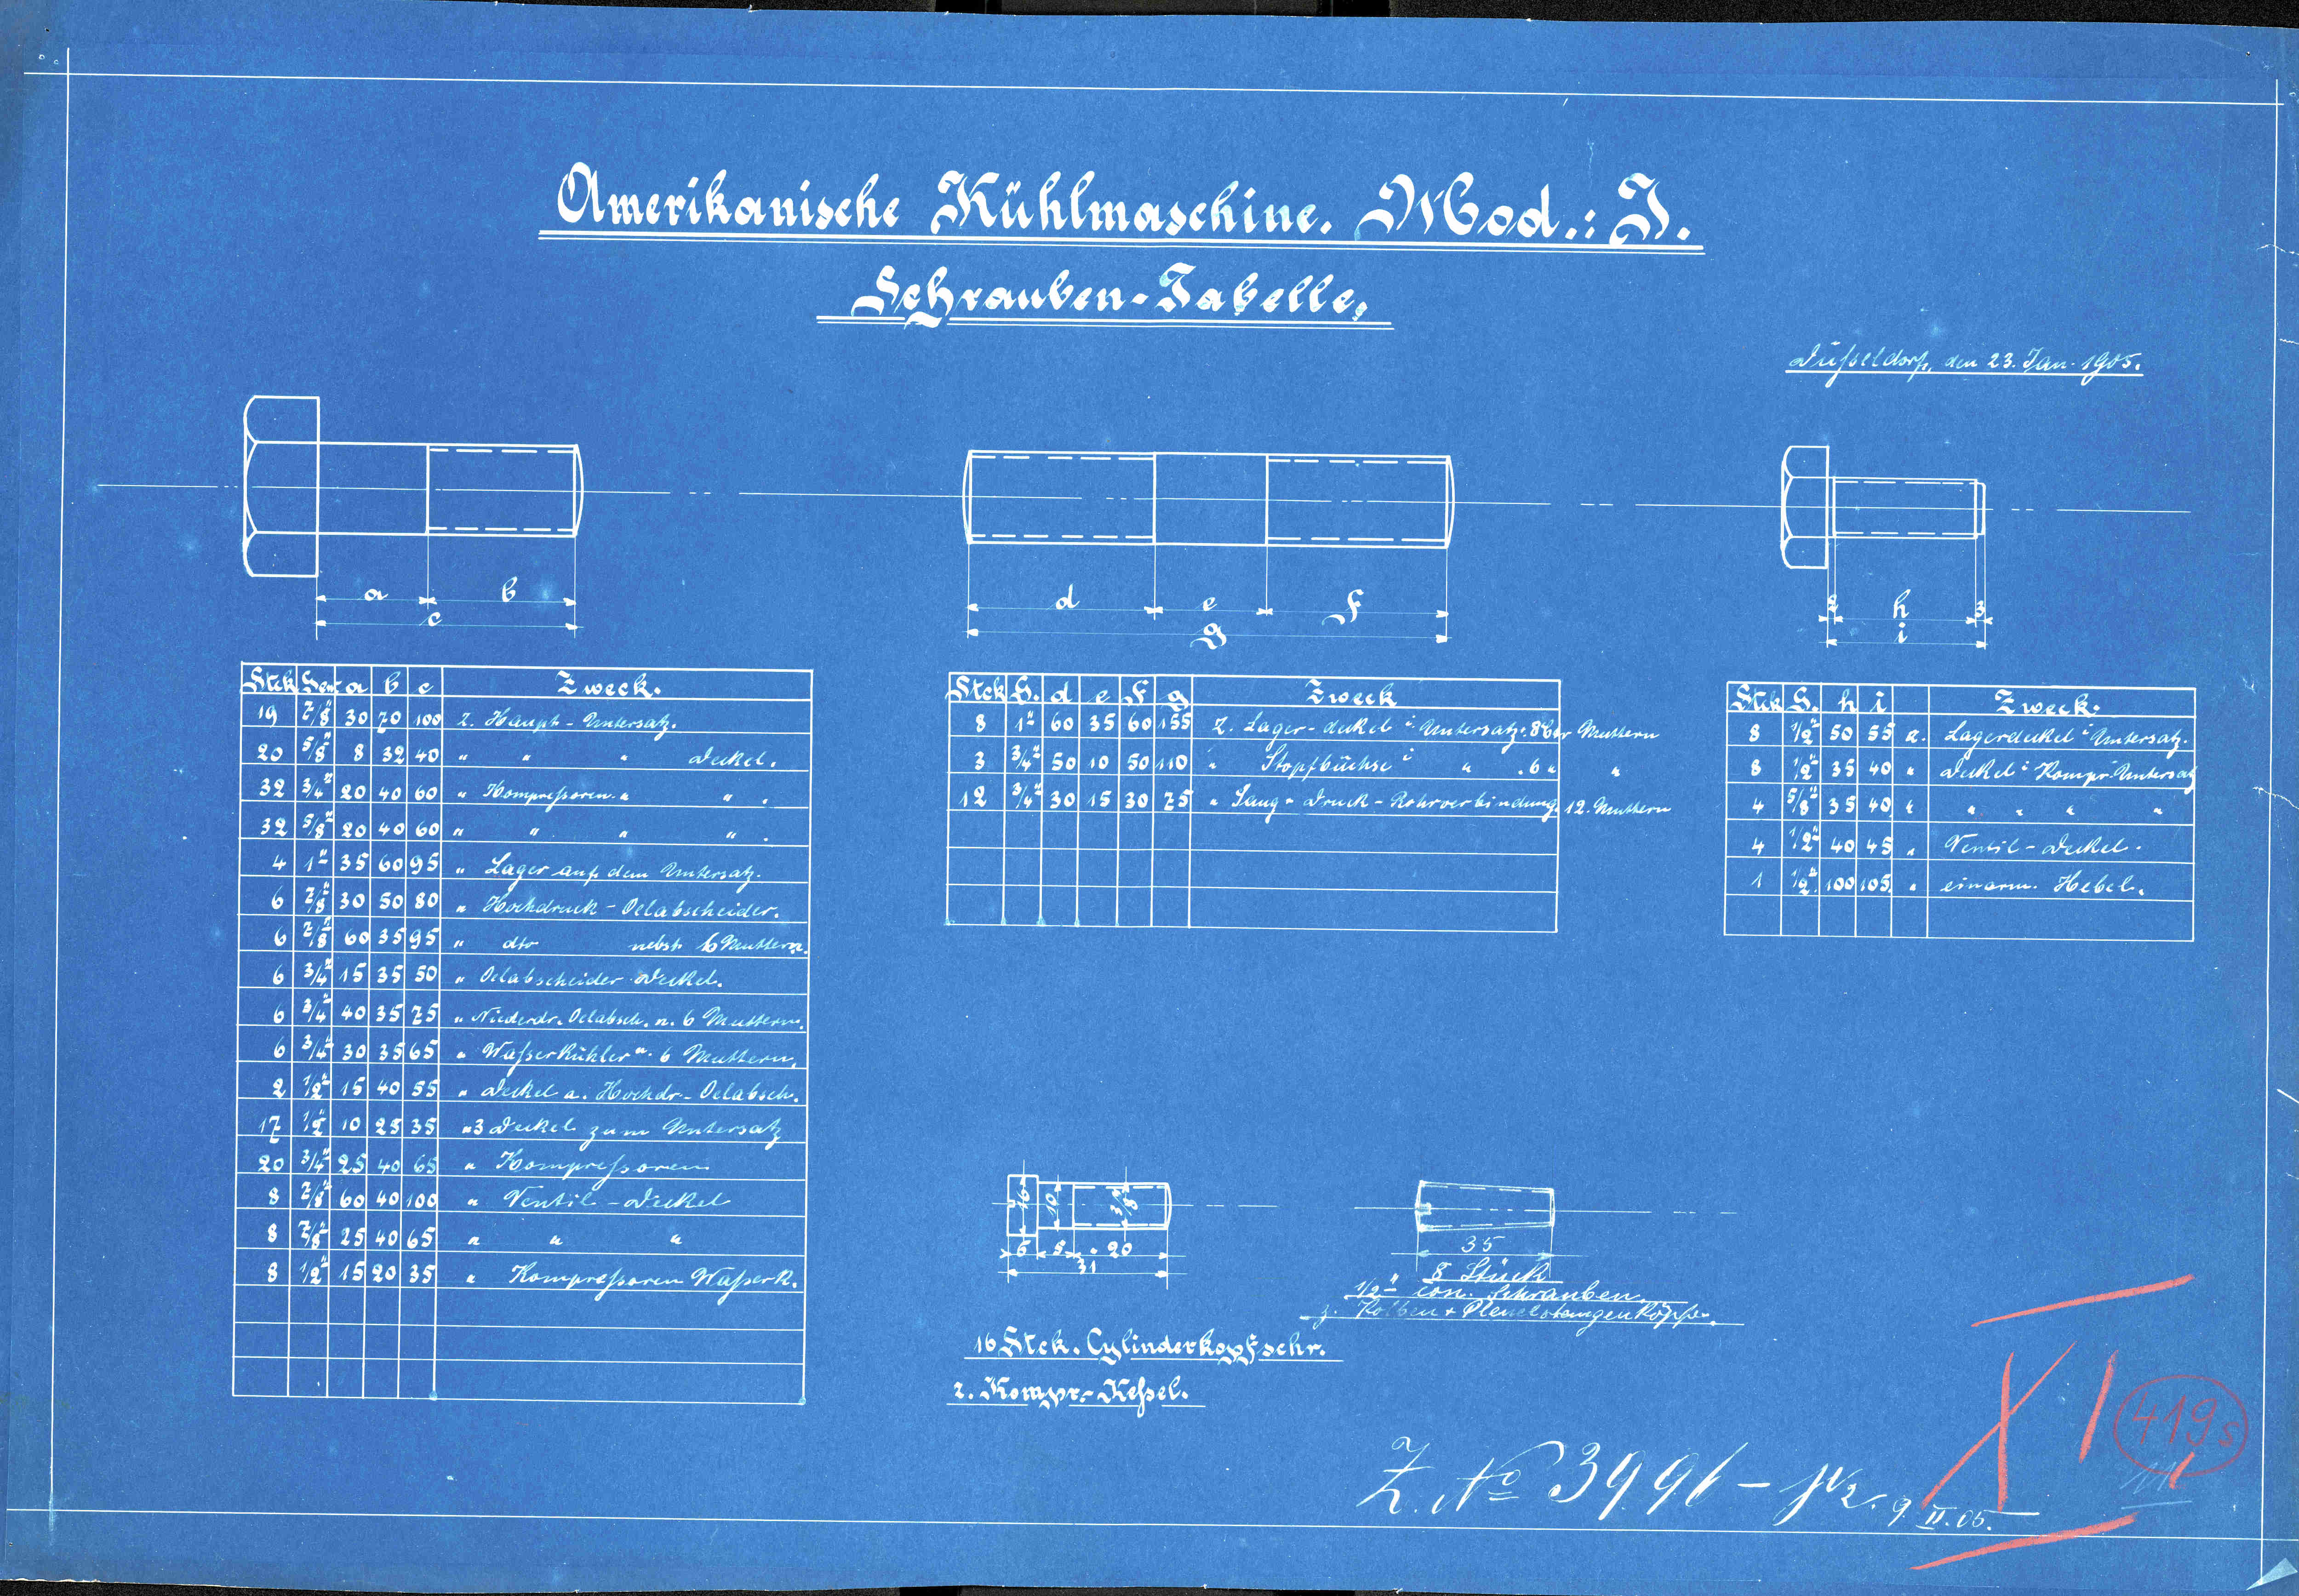 Amerikanische Kühlmaschine. Mod.: I.
Schrauben-Tabelle.
Düsseldorf, den 23. Jan. 1905.
a b
c
d e f
g
2 h 3
i
Stck. Gew. a b c Zweck.
19 7/8" 30 70 100 z. Haupt-Untersatz.
20 5/8" 8 32 40 " " " Deckel.
32 3/4" 20 40 60 " Kompressoren " " .
32 5/8" 20 40 60 " " " " .
4 1" 35 60 95 " Lager auf dem Untersatz.
6 7/8" 30 50 80 " Hochdruck-Oelabscheider.
6 7/8" 60 35 95 " dto nebst 6 Muttern.
6 3/4" 15 35 50 " Oelabscheider Deckel.
6 3/4" 40 35 75 " Niederdr. Oelabsch. n. 6 Muttern.
6 3/4" 30 35 65 " Wasserkühler n. 6 Muttern.
2 1/2" 15 40 55 " Deckel a. Hochdr.-Oelabsch.
17 1/2" 10 25 35 " 3 Deckel zum Untersatz
20 3/4" 25 40 65 " Kompressoren
8 7/8" 60 40 100 " Ventil-Deckel
8 7/8" 25 40 65 " " "
8 1/2" 15 20 35 " Kompressoren Wasserk.
Stck G. d e f g Zweck
8 1" 60 35 60 155 z. Lager-deckel i Untersatz. 8 Muttern
3 3/4" 50 10 50 110 " Stopfbüchse i " . 6 " "
12 3/4" 30 15 30 75 " Saug- Druck-Rohrverbindung. 12. Muttern
Stck G. h i Zweck.
8 1/2" 50 55 z. Lagerdeckel i Untersatz.
8 1/2" 35 40 " Deckel i Kompr. Untersatz
4 5/8" 35 40 " " " " "
4 1/2" 40 45 " Ventil-Deckel.
1 1/2" 100 105 " einarm. Hebel.
16 10 3/8
6 5 20
31
16 Stck. Cylinderkopfschr.
z. Kompr.-Kessel.
35
8 Stück
1/2" con. Schrauben
z. Kolben + Pleuelstangenköpfe.
Z. No 3996 - 9. II. 05.
XI
419s